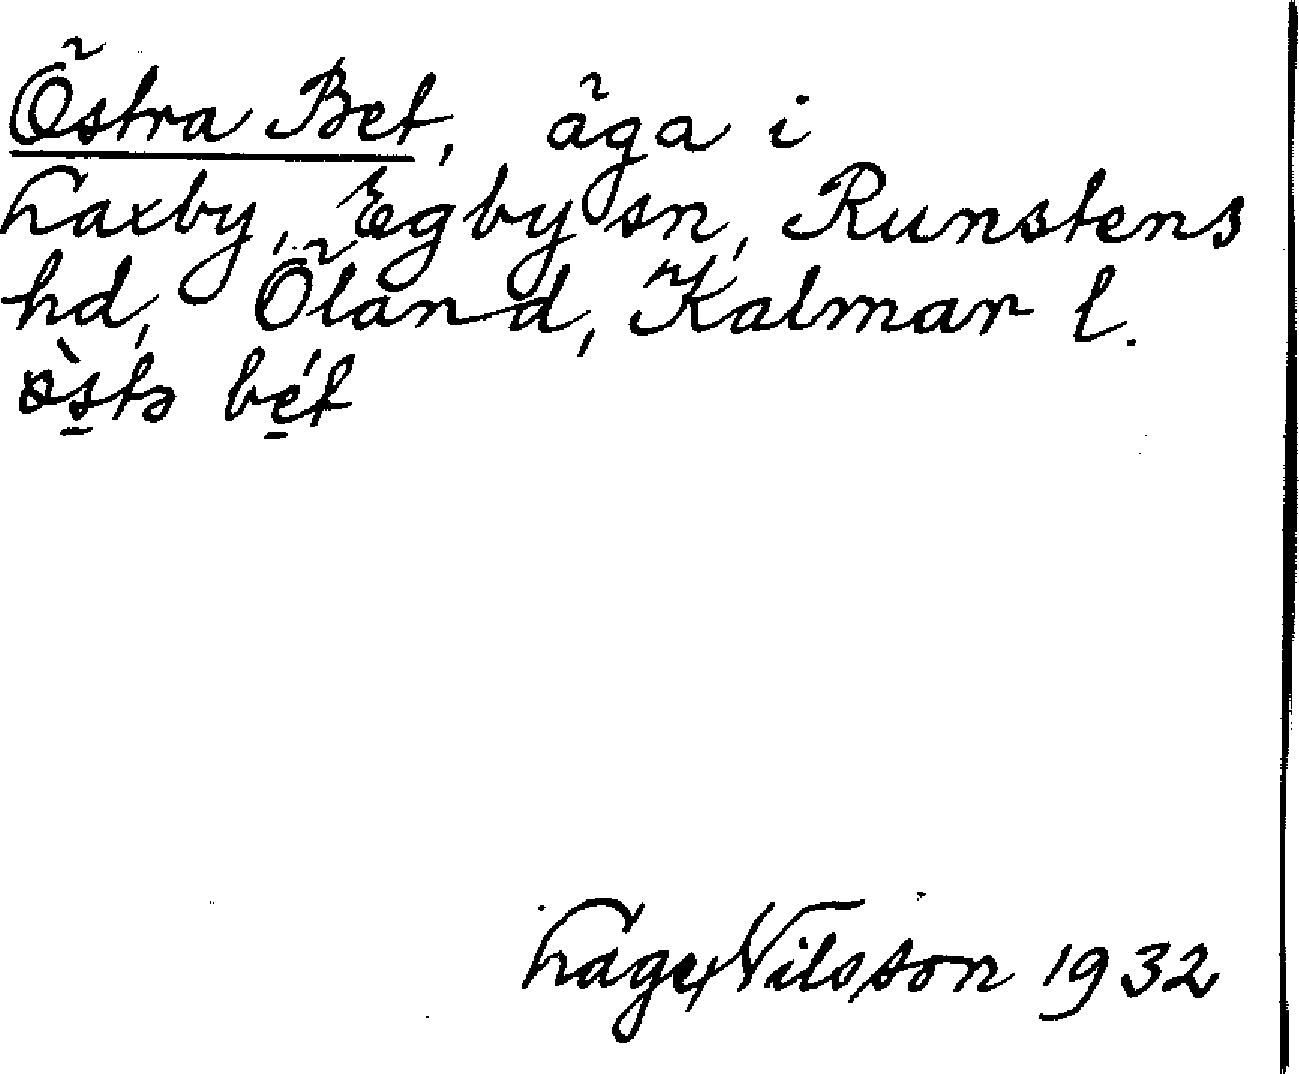 Östra Bet, äga i
Taxby, Egby sn, Runstens
hd, Öland, Kalmar l.
ös̱tə bé̱t
Tage Nilsson 1932